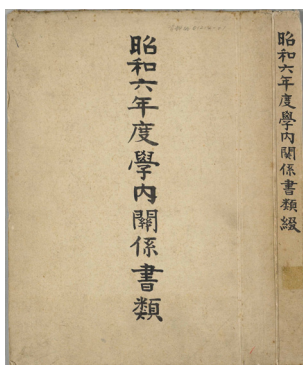 昭和六年度學內關係書類綴
昭和六年度學內關係書類